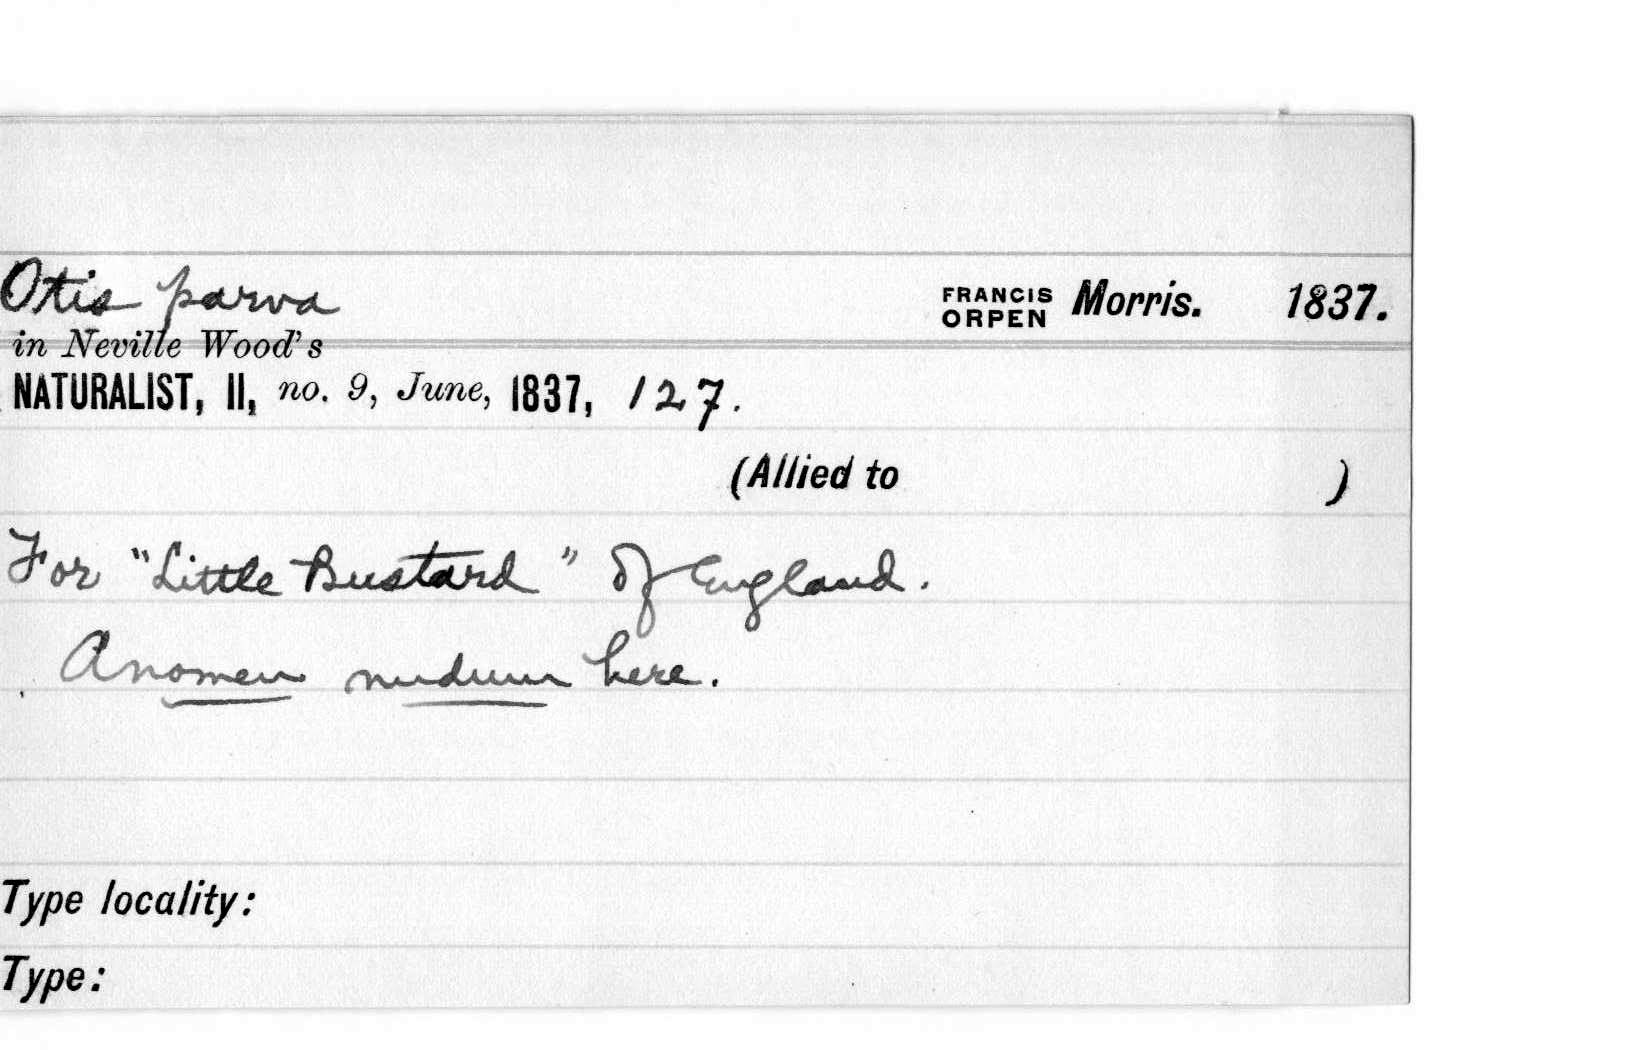 Otis parva FRANCIS ORPEN Morris. 1837.
in Neville Wood's
NATURALIST, II, no. 9, June, 1837, 127.
(Allied to )
For "Little Bustard" of England.
A nomen nudum here.
Type locality:
Type: